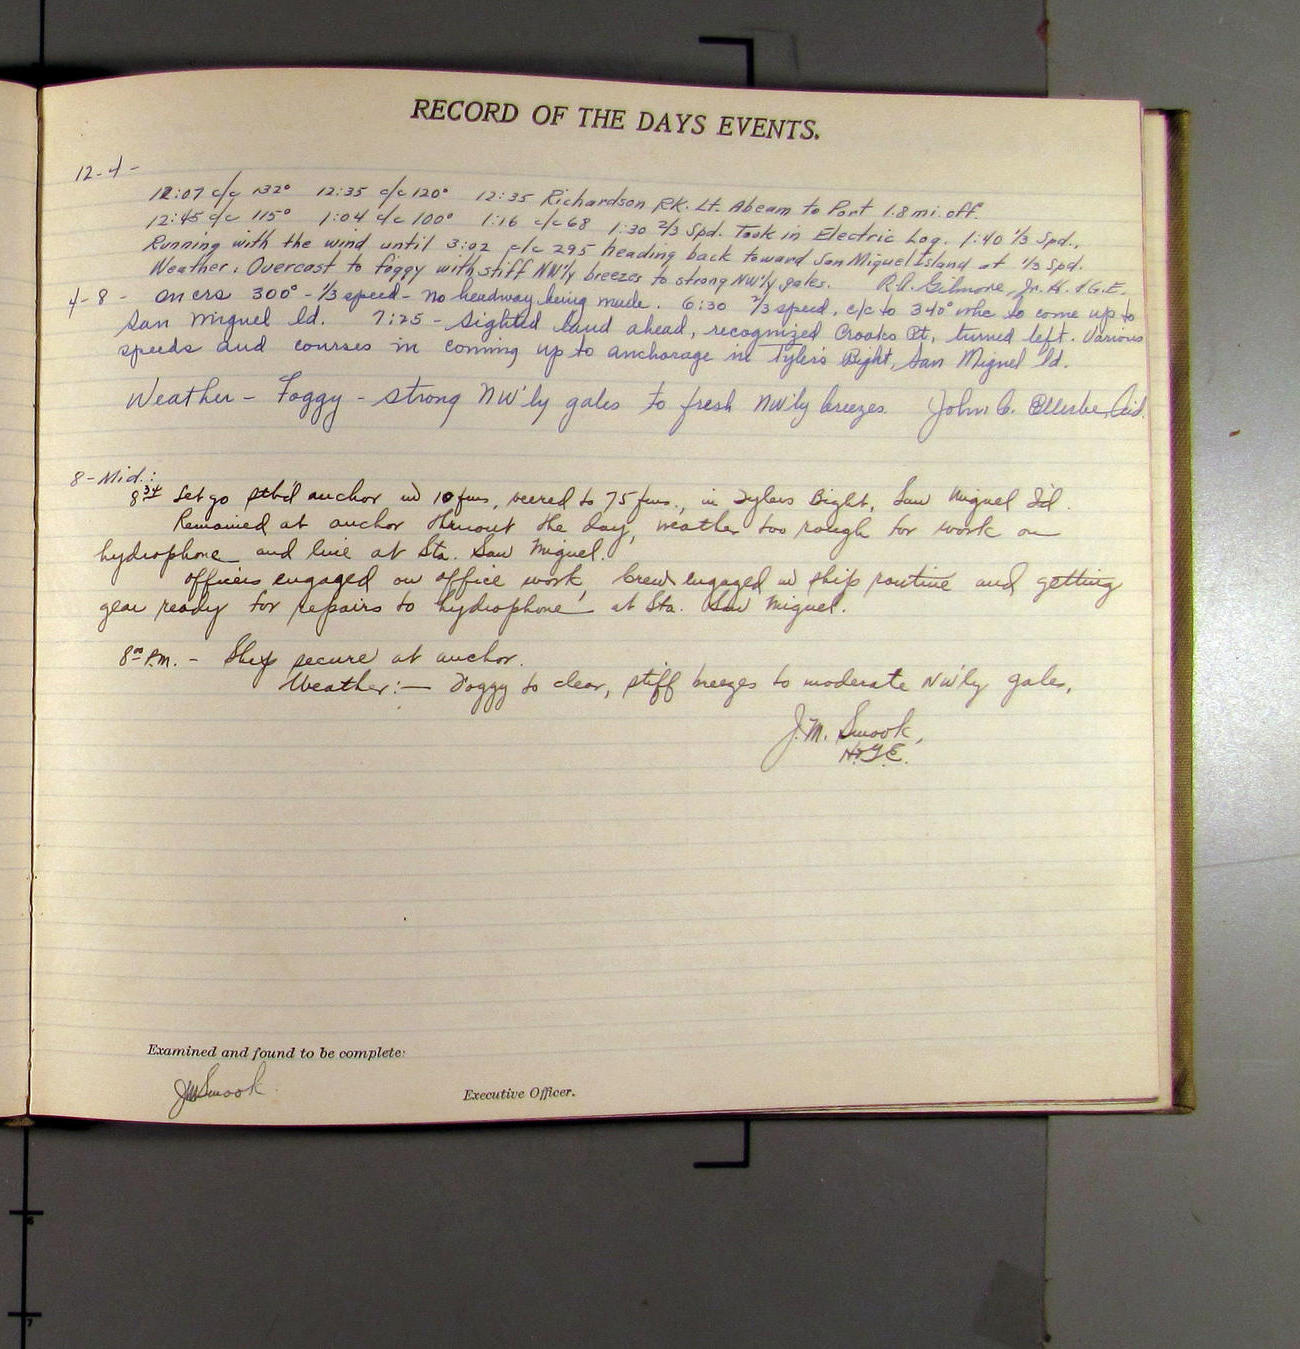 RECORD OF THE DAYS EVENTS.
12-4-
12:07 c/c 132° 12:35 c/c 120° 12:35 Richardson Rk. Lt. Abeam to Port 1.8 mi. off.
12:45 c/c 115° 1:04 c/c 100° 1:16 c/c 68 1:30 2/3 Spd. Took in Electric Log. 1:40 1/3 Spd.,
Running with the wind until 3:02 c/c 295 heading back toward San Miguel Island at 1/3 Spd.
Weather: Overcast to foggy with stiff NW'ly breezes to strong NW'ly gales. Gilmore, Jr. H. & G.E.
4-8- on crs 300° - 1/3 speed - no headway being made. 6:30 2/3 speed, c/c to 340° to come up to
San Miguel Id. 7:25 - Sighted land ahead, recognized Crooks Pt, turned left. Various
speeds and courses in coming up to anchorage in Tyler's Bight, San Miguel Id.
Weather - Foggy - strong NW'ly gales to fresh NW'ly breezes. John C.
8-Mid.:
8 34 Let go stb'd anchor in 10 fms, veered to 75 fms., in Tylers Bight, San Miguel I'd.
Remained at anchor thruout the day, weather too rough for work on
hydrophone and line at Sta. San Miguel.
officers engaged on office work, crew engaged in ship routine and getting
gear ready for repairs to hydrophone at Sta. San Miguel.
8 00 P.M. - Ship secure at anchor.
Weather:— Foggy to clear, stiff breezes to moderate NW'ly gales.
J.M. Smook,
H&G.E.
Examined and found to be complete:
JMSmook
Executive Officer.
6
7